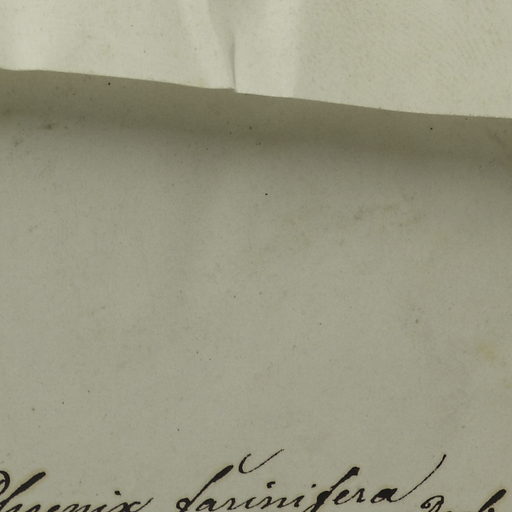 Phoenix farinifera